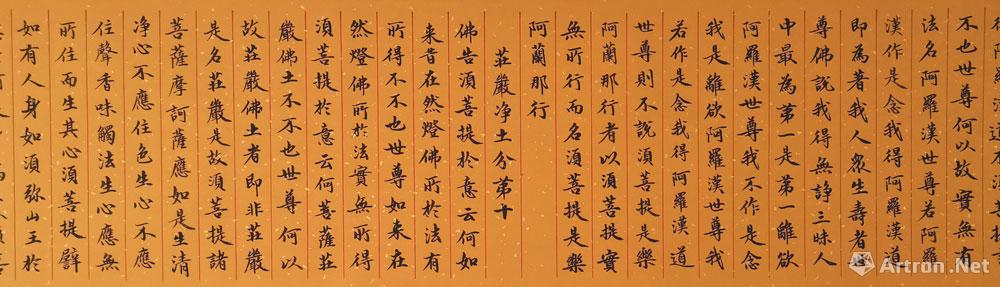 不也世尊何以故實無有
法名阿羅漢世尊若阿羅
漢作是念我得阿羅漢道
即為著我人眾生壽者世
尊佛說我得無諍三昧人
中最為第一是第一離欲
阿羅漢世尊我不作是念
我是離欲阿羅漢世尊我
若作是念我得阿羅漢道
世尊則不說須菩提是樂
阿蘭那行者以須菩提實
無所行而名須菩提是樂
阿蘭那行
莊嚴净土分第十
佛告須菩提於意云何如
来昔在然燈佛所於法有
所得不不也世尊如来在
然燈佛所於法實無所得
須菩提於意云何菩薩莊
嚴佛土不不也世尊何以
故莊嚴佛土者即非莊嚴
是名莊嚴是故須菩提諸
菩薩摩訶薩應如是生清
净心不應住色生心不應
住聲香味觸法生心應無
所住而生其心須菩提譬
如有人身如須弥山王於
Artron.Net